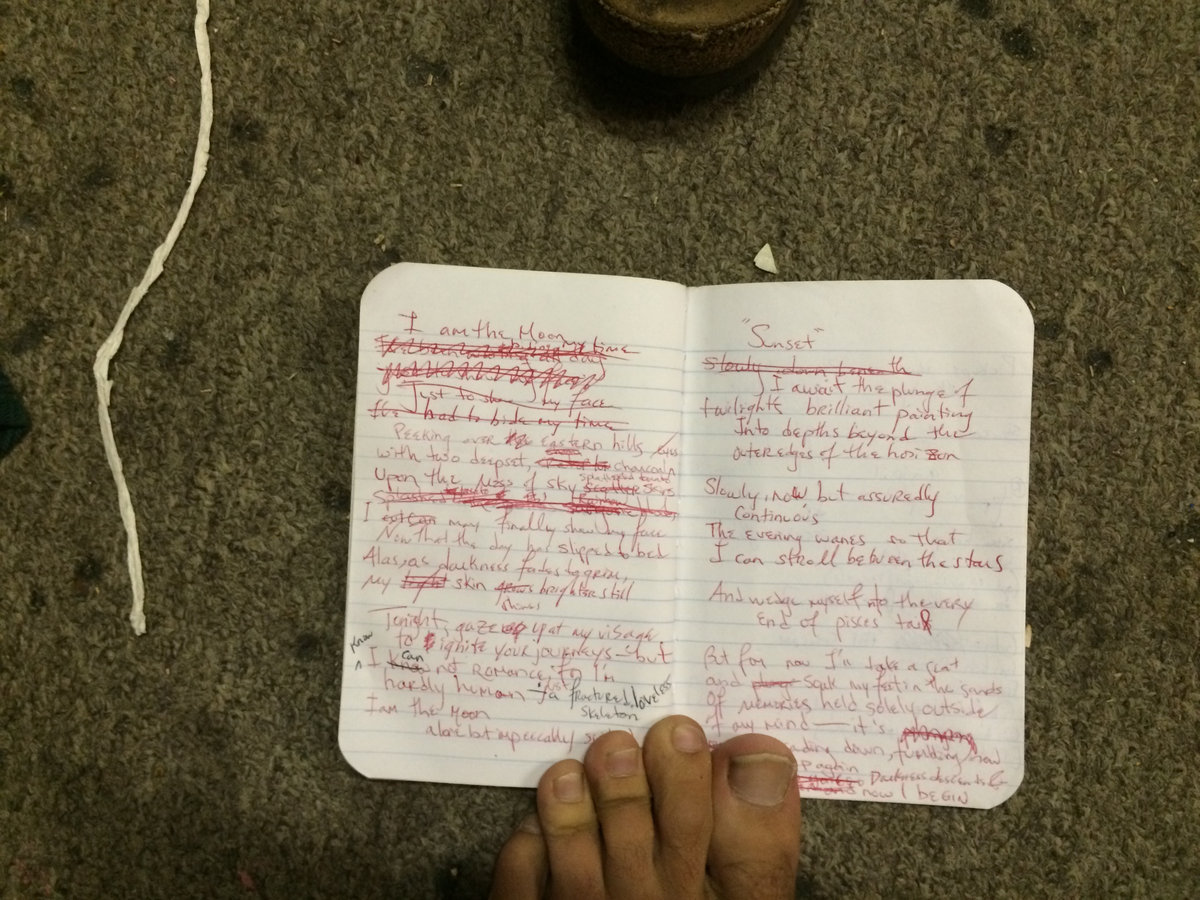 I am the Moon
my time
Just to show my face
I've had to bide my time
Peeking over the eastern hills eyes
with two deepset, charcoal
Upon the mess of sky
I may finally show my face
Now that the day has slipped to bed
Alas, as darkness fades to grim,
my skin grows brighter still
shines
Tonight, gaze up at my visage
to ignite your journeys—but
know
I can not Romance, for I'm
hardly human — just a fractured, loveless
skeleton
I am the Moon
alone but impeccably
"Sunset"
Slowly down beneath
I await the plunge of
twilights brilliant painting
Into depths beyond the
outer edges of the horizon
Slowly, now but assuredly
continuous
The evening wanes so that
I can stroll between the stars
And wedge myself into the very
end of pisces tail
But for now I'll take a seat
and soak my feet in the sands
Of memories held solely outside
of my mind — it's
down, now
again
Darkness descends &
now I BEGIN